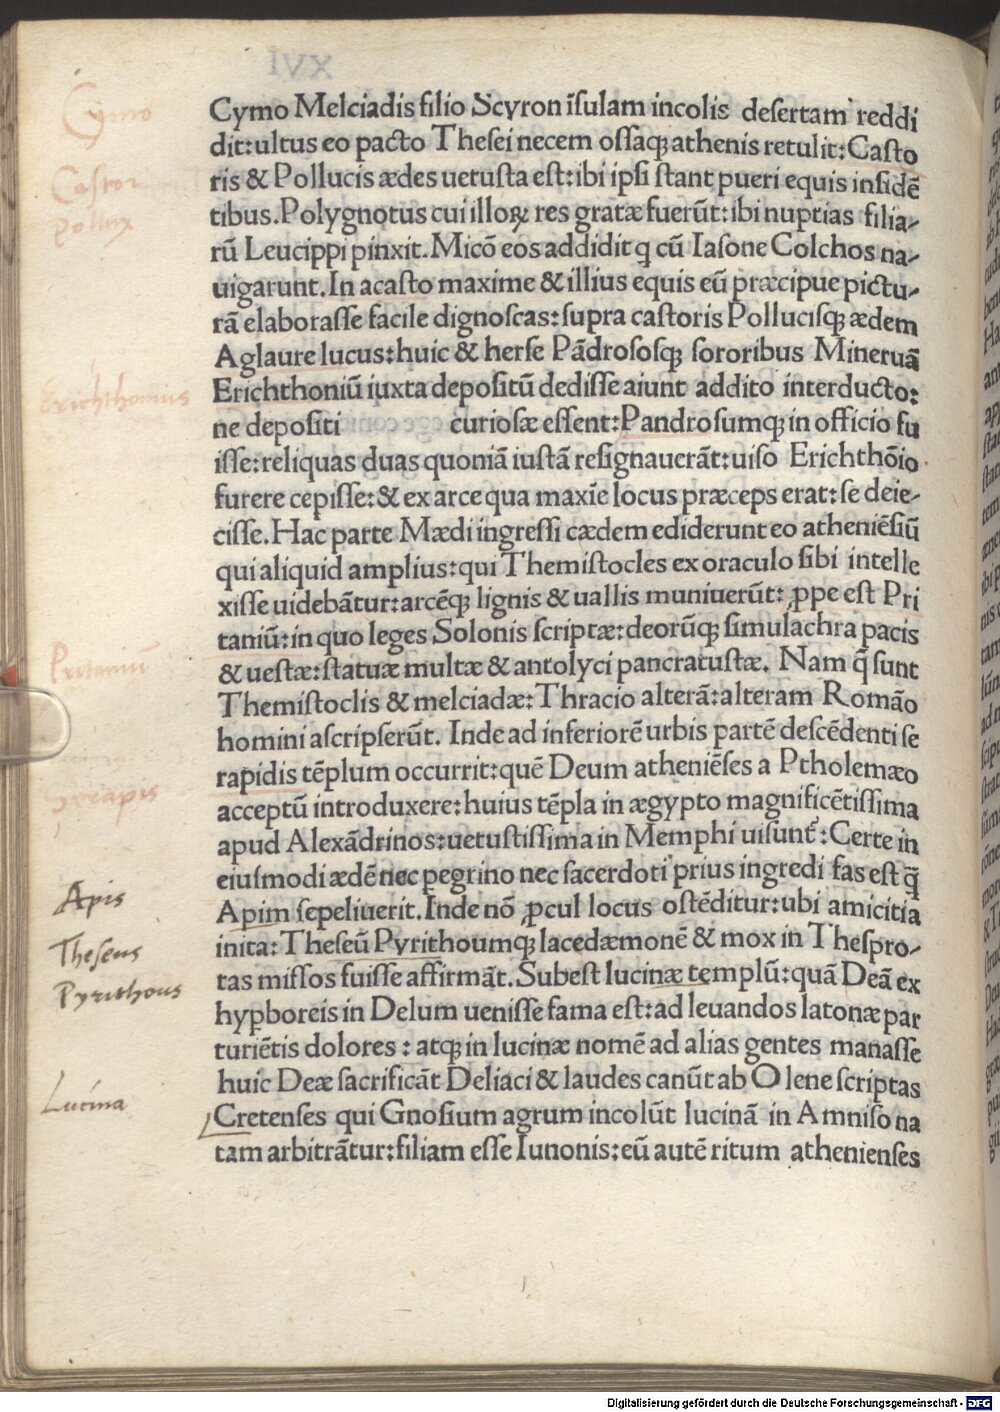 Cymo
Castor
Pollux
Erichthonius
Pritaniū
Serapis
Apis
Theseus
Pyrithous
Lucina
Cymo Melciadis filio Scyron īsulam incolis desertam reddi
dit: ultus eo pacto Thesei necem ossaqꝫ athenis retulit: Casto
ris & Pollucis ædes uetusta est: ibi ipsi stant pueri equis insidē
tibus. Polygnotus cui illoꝝ res gratæ fuerūt: ibi nuptias filia-
rū Leucippi pinxit. Micō eos addidit q cū Iasone Colchos na-
uigarunt. In acasto maxime & illius equis eū præcipue pictu-
rā elaborasse facile dignoscas: supra castoris Pollucisqꝫ ædem
Aglaure lucus: huic & herse Pādrososqꝫ sororibus Mineruā
Erichthoniū iuxta depositū dedisse aiunt addito interducto:
ne depositi curiosæ essent: Pandrosumqꝫ in officio fu
isse: reliquas duas quoniā iustā resignauerāt: uiso Erichthōio
furere cepisse: & ex arce qua maxīe locus præceps erat: se deie-
cisse. Hac parte Mædi ingressi cædem ediderunt eo atheniēsiū
qui aliquid amplius: qui Themistocles ex oraculo sibi intelle
xisse uidebātur: arcēqꝫ lignis & uallis muniuerūt: ꝓpe est Pri
taniū: in quo leges Solonis scriptæ: deorūqꝫ simulachra pacis
& uestæ: statuæ multæ & antolyci pancratustæ. Nam q̄ sunt
Themistoclis & melciadæ: Thracio alterā: alteram Romāo
homini ascripserūt. Inde ad inferiorē urbis partē descēdenti se
rapidis tēplum occurrit: quē Deum atheniēses a Ptholemæo
acceptū introduxere: huius tēpla in ægypto magnificētissima
apud Alexādrinos: uetustissima in Memphi uisunt᷑: Certe in
eiusmodi ædē nec pegrino nec sacerdoti prius ingredi fas est q̄
Apim sepeliuerit. Inde nō ꝓcul locus ostēditur: ubi amicitia
inita: Theseū Pyrithoumqꝫ lacedæmonē & mox in Thespro-
tas missos fuisse affirmāt. Subest lucinæ templū: quā Deā ex
hyꝑboreis in Delum uenisse fama est: ad leuandos latonæ par
turiētis dolores: atqꝫ in lucinæ nomē ad alias gentes manasse
huic Deæ sacrificāt Deliaci & laudes canūt ab Olene scriptas
Cretenses qui Gnosium agrum incolūt lucinā in Amniso na
tam arbitrātur: filiam esse Iunonis: eū autē ritum athenienses
Digitalisierung gefördert durch die Deutsche Forschungsgemeinschaft - DFG